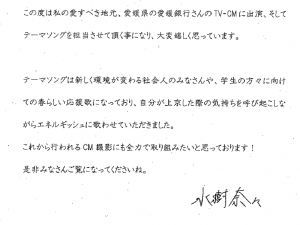 この度は私の愛すべき地元、愛媛県の愛媛銀行さんのTV-CMに出演、そして
テーマソングを担当させて頂く事になり、大変嬉しく思っています。
テーマソングは新しく環境が変わる社会人のみなさんや、学生の方々に向け
ての春らしい応援歌になっており、自分が上京した際の気持ちを呼び起こしな
がらエネルギッシュに歌わせていただきました。
これから行われるCM撮影にも全力で取り組みたいと思っております!
是非みなさんご覧になってくださいね。
水樹奈々